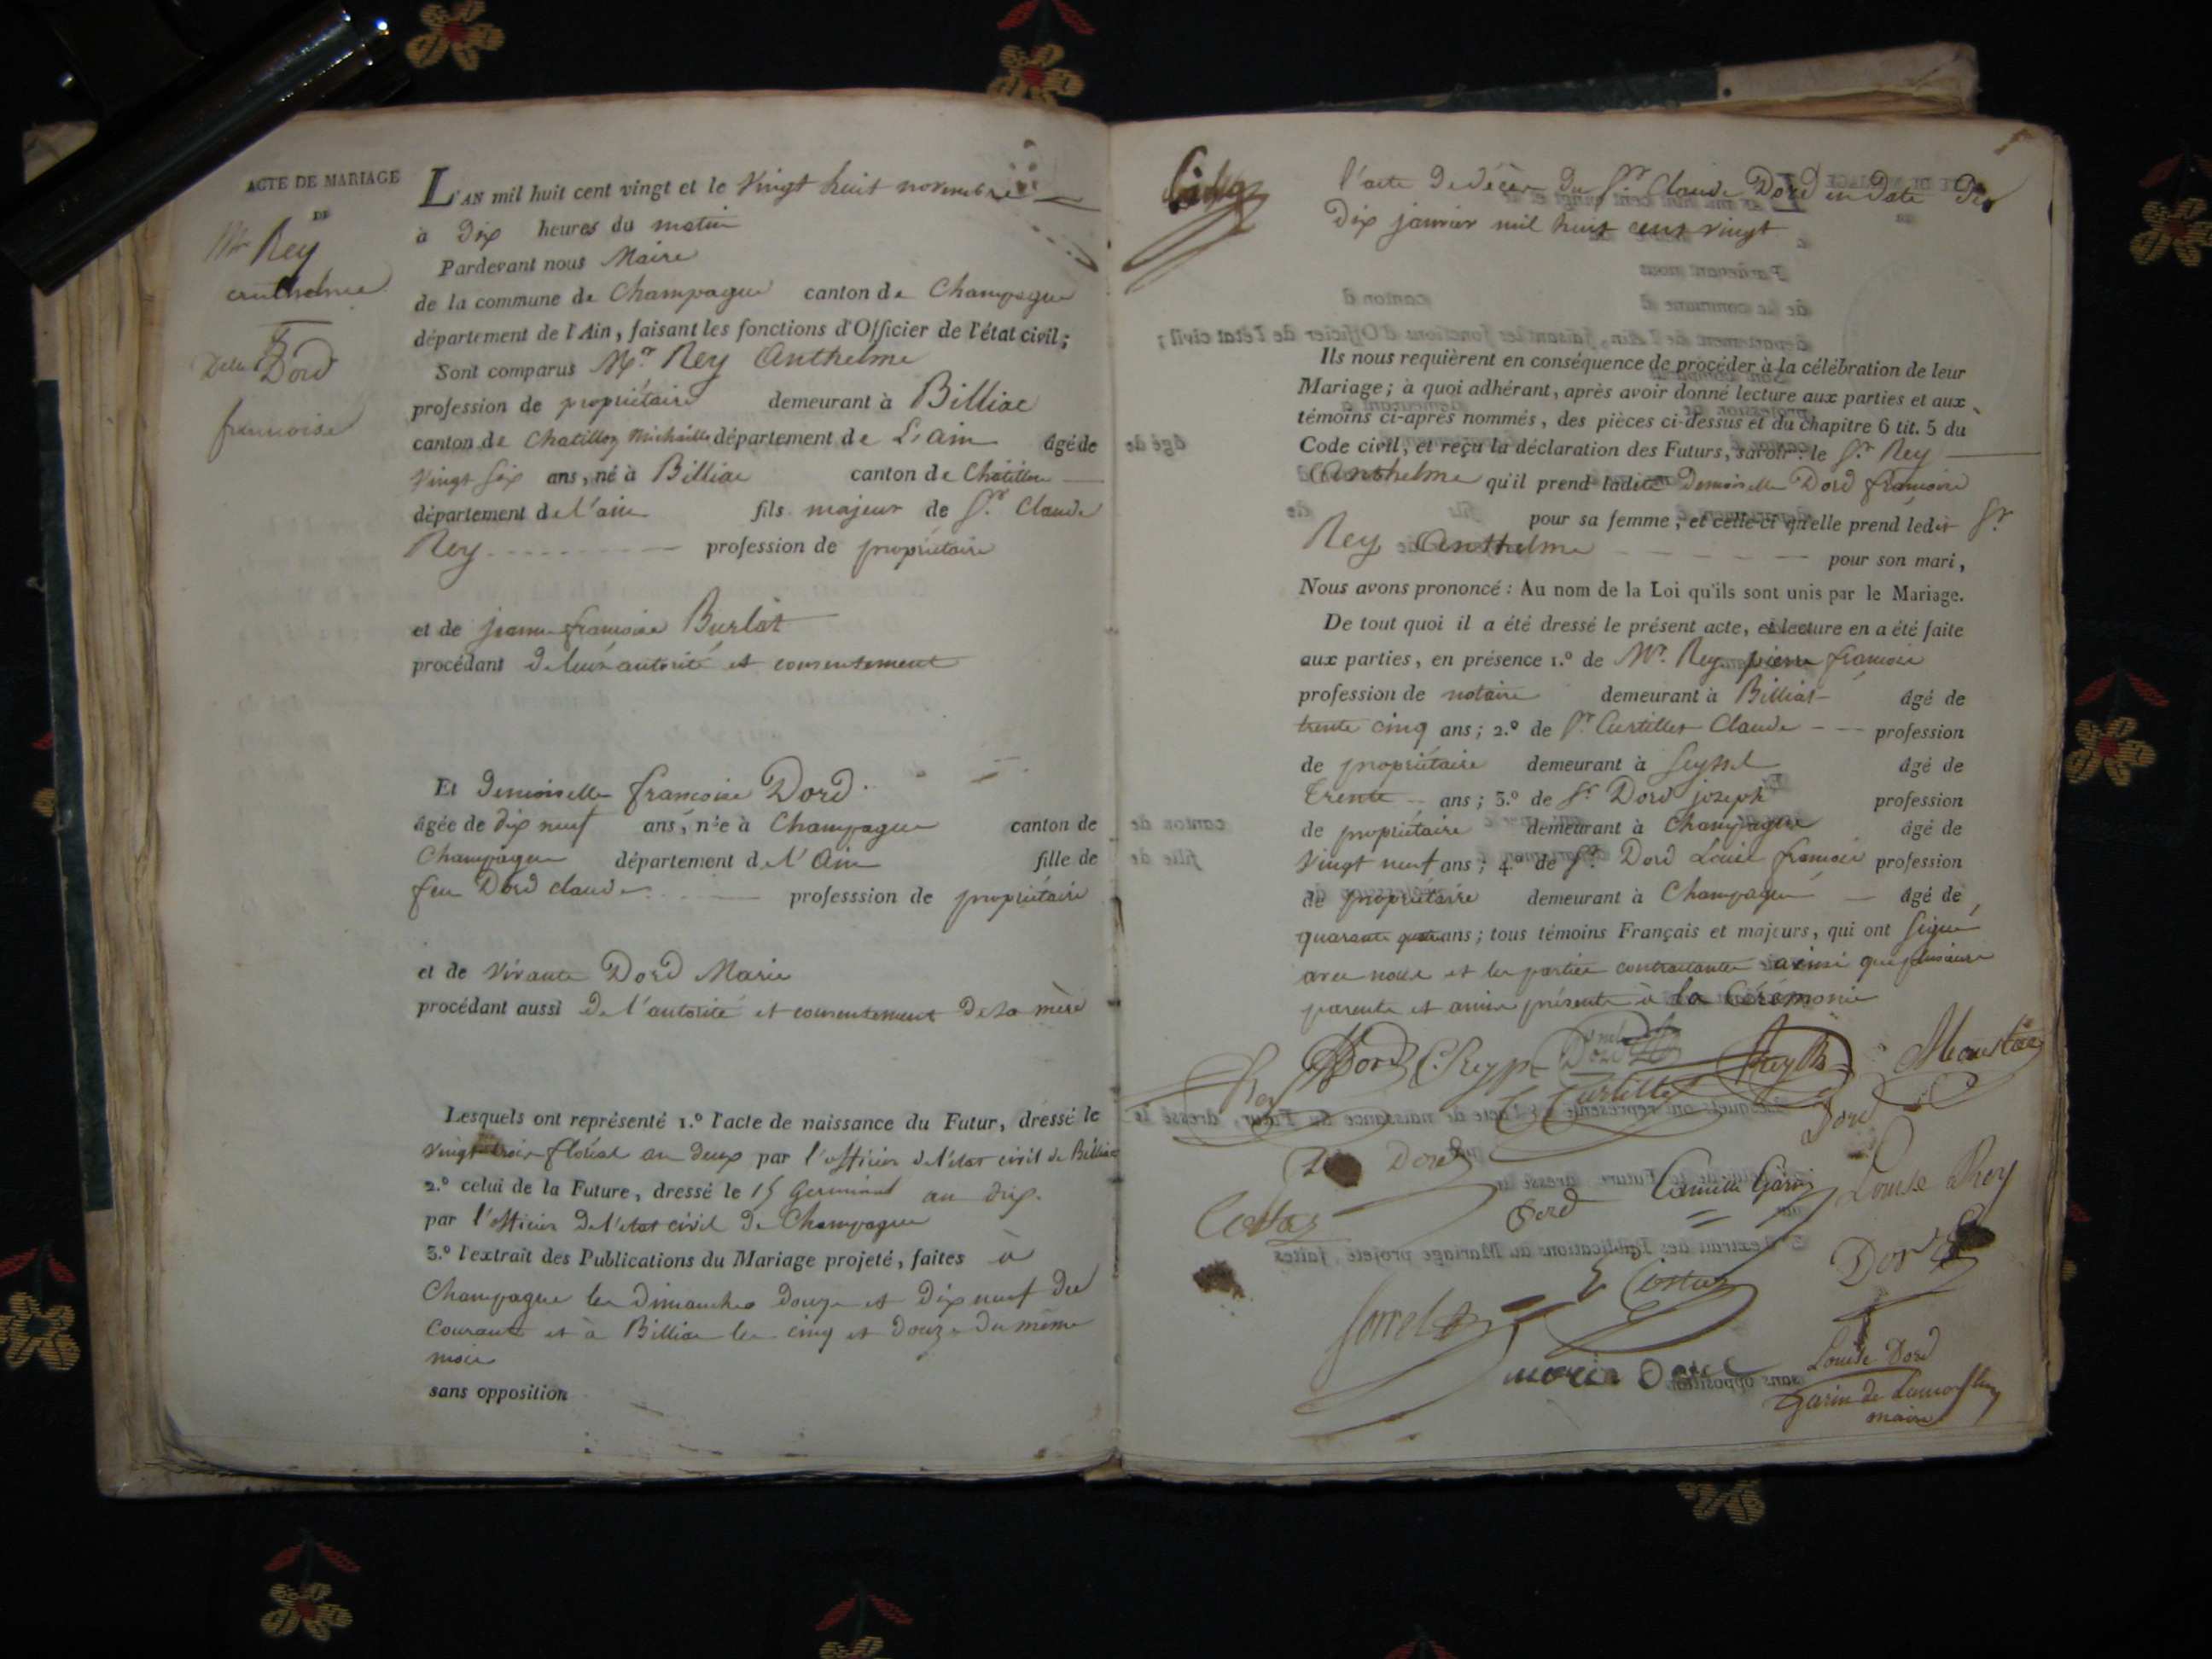 ACTE DE MARIAGE
DE
Mr Rey
anthelme
&
Delle Dord
francoise
L'AN mil huit cent vingt et le vingt huit novembre
à dix heures du matin
Pardevant nous Maire
de la commune de Champagne canton de Champagne
département de l'Ain, faisant les fonctions d'Officier de l'état civil;
Sont comparus Mr. Rey Anthelme
profession de propriétaire demeurant à Billiac
canton de Chatillon Michaille département de L'ain âgé de
vingt six ans, né à Billiac canton de Châtillon
département de l'ain fils majeur de Sr. Claude
Rey profession de propriétaire
et de jeanne francoise Burlat
procédant de leur autorité et consentement
Et demoiselle francoise Dord
âgée de dix neuf ans, née à Champagne canton de
Champagne département de l'Ain fille de
feu Dord claude professsion de propriétaire
et de vivante Dord Marie
procédant aussi de l'autorité et consentement de sa mère
Lesquels ont représenté 1.º l'acte de naissance du Futur, dressé le
vingt trois floréal an deux par l'officier de l'état civil de Billiac
2.º celui de la Future, dressé le 15 Germinal an dix.
par l'officier de l'état civil de Champagne
3.º l'extrait des Publications du Mariage projeté, faites à
Champagne les dimanches douze et dix neuf du
courant et à Billiac les cinq et douze du même
mois
sans opposition
l'acte de décès du Sr Claude Dord en date du
dix janvier mil huit cent vingt
Ils nous requièrent en conséquence de procéder à la célébration de leur
Mariage; à quoi adhérant, après avoir donné lecture aux parties et aux
témoins ci-après nommés, des pièces ci-dessus et du chapitre 6 tit. 5 du
Code civil, et reçu la déclaration des Futurs, savoir: le Sr. Rey
Anthelme qu'il prend ladite demoiselle Dord francoise
pour sa femme, et celle-ci qu'elle prend ledit Sr.
Rey Anthelme pour son mari,
Nous avons prononcé : Au nom de la Loi qu'ils sont unis par le Mariage.
De tout quoi il a été dressé le présent acte, et lecture en a été faite
aux parties, en présence 1.º de Mr. Rey pierre francois
profession de notaire demeurant à Billiat âgé de
trente cinq ans; 2.º de Sr Curtillet Claude profession
de propriétaire demeurant à Seyssel âgé de
trente ans; 3.º de Sr Dord joseph profession
de propriétaire demeurant à Champagne âgé de
vingt neuf ans; 4.º de Sr. Dord Louis francois profession
de propriétaire demeurant à Champagne âgé de
quarante quatre ans; tous témoins Français et majeurs, qui ont signé
avec nous et les parties contractantes ainsi que plusieurs
parents et amis présents à la Cérémonie
Rey Dord Dord
Curtillet Dord
Dord
Costaz Dord Camille Garin Louise Rey
Costaz Dord
marie Dord Louise Dord
Garin de
maire